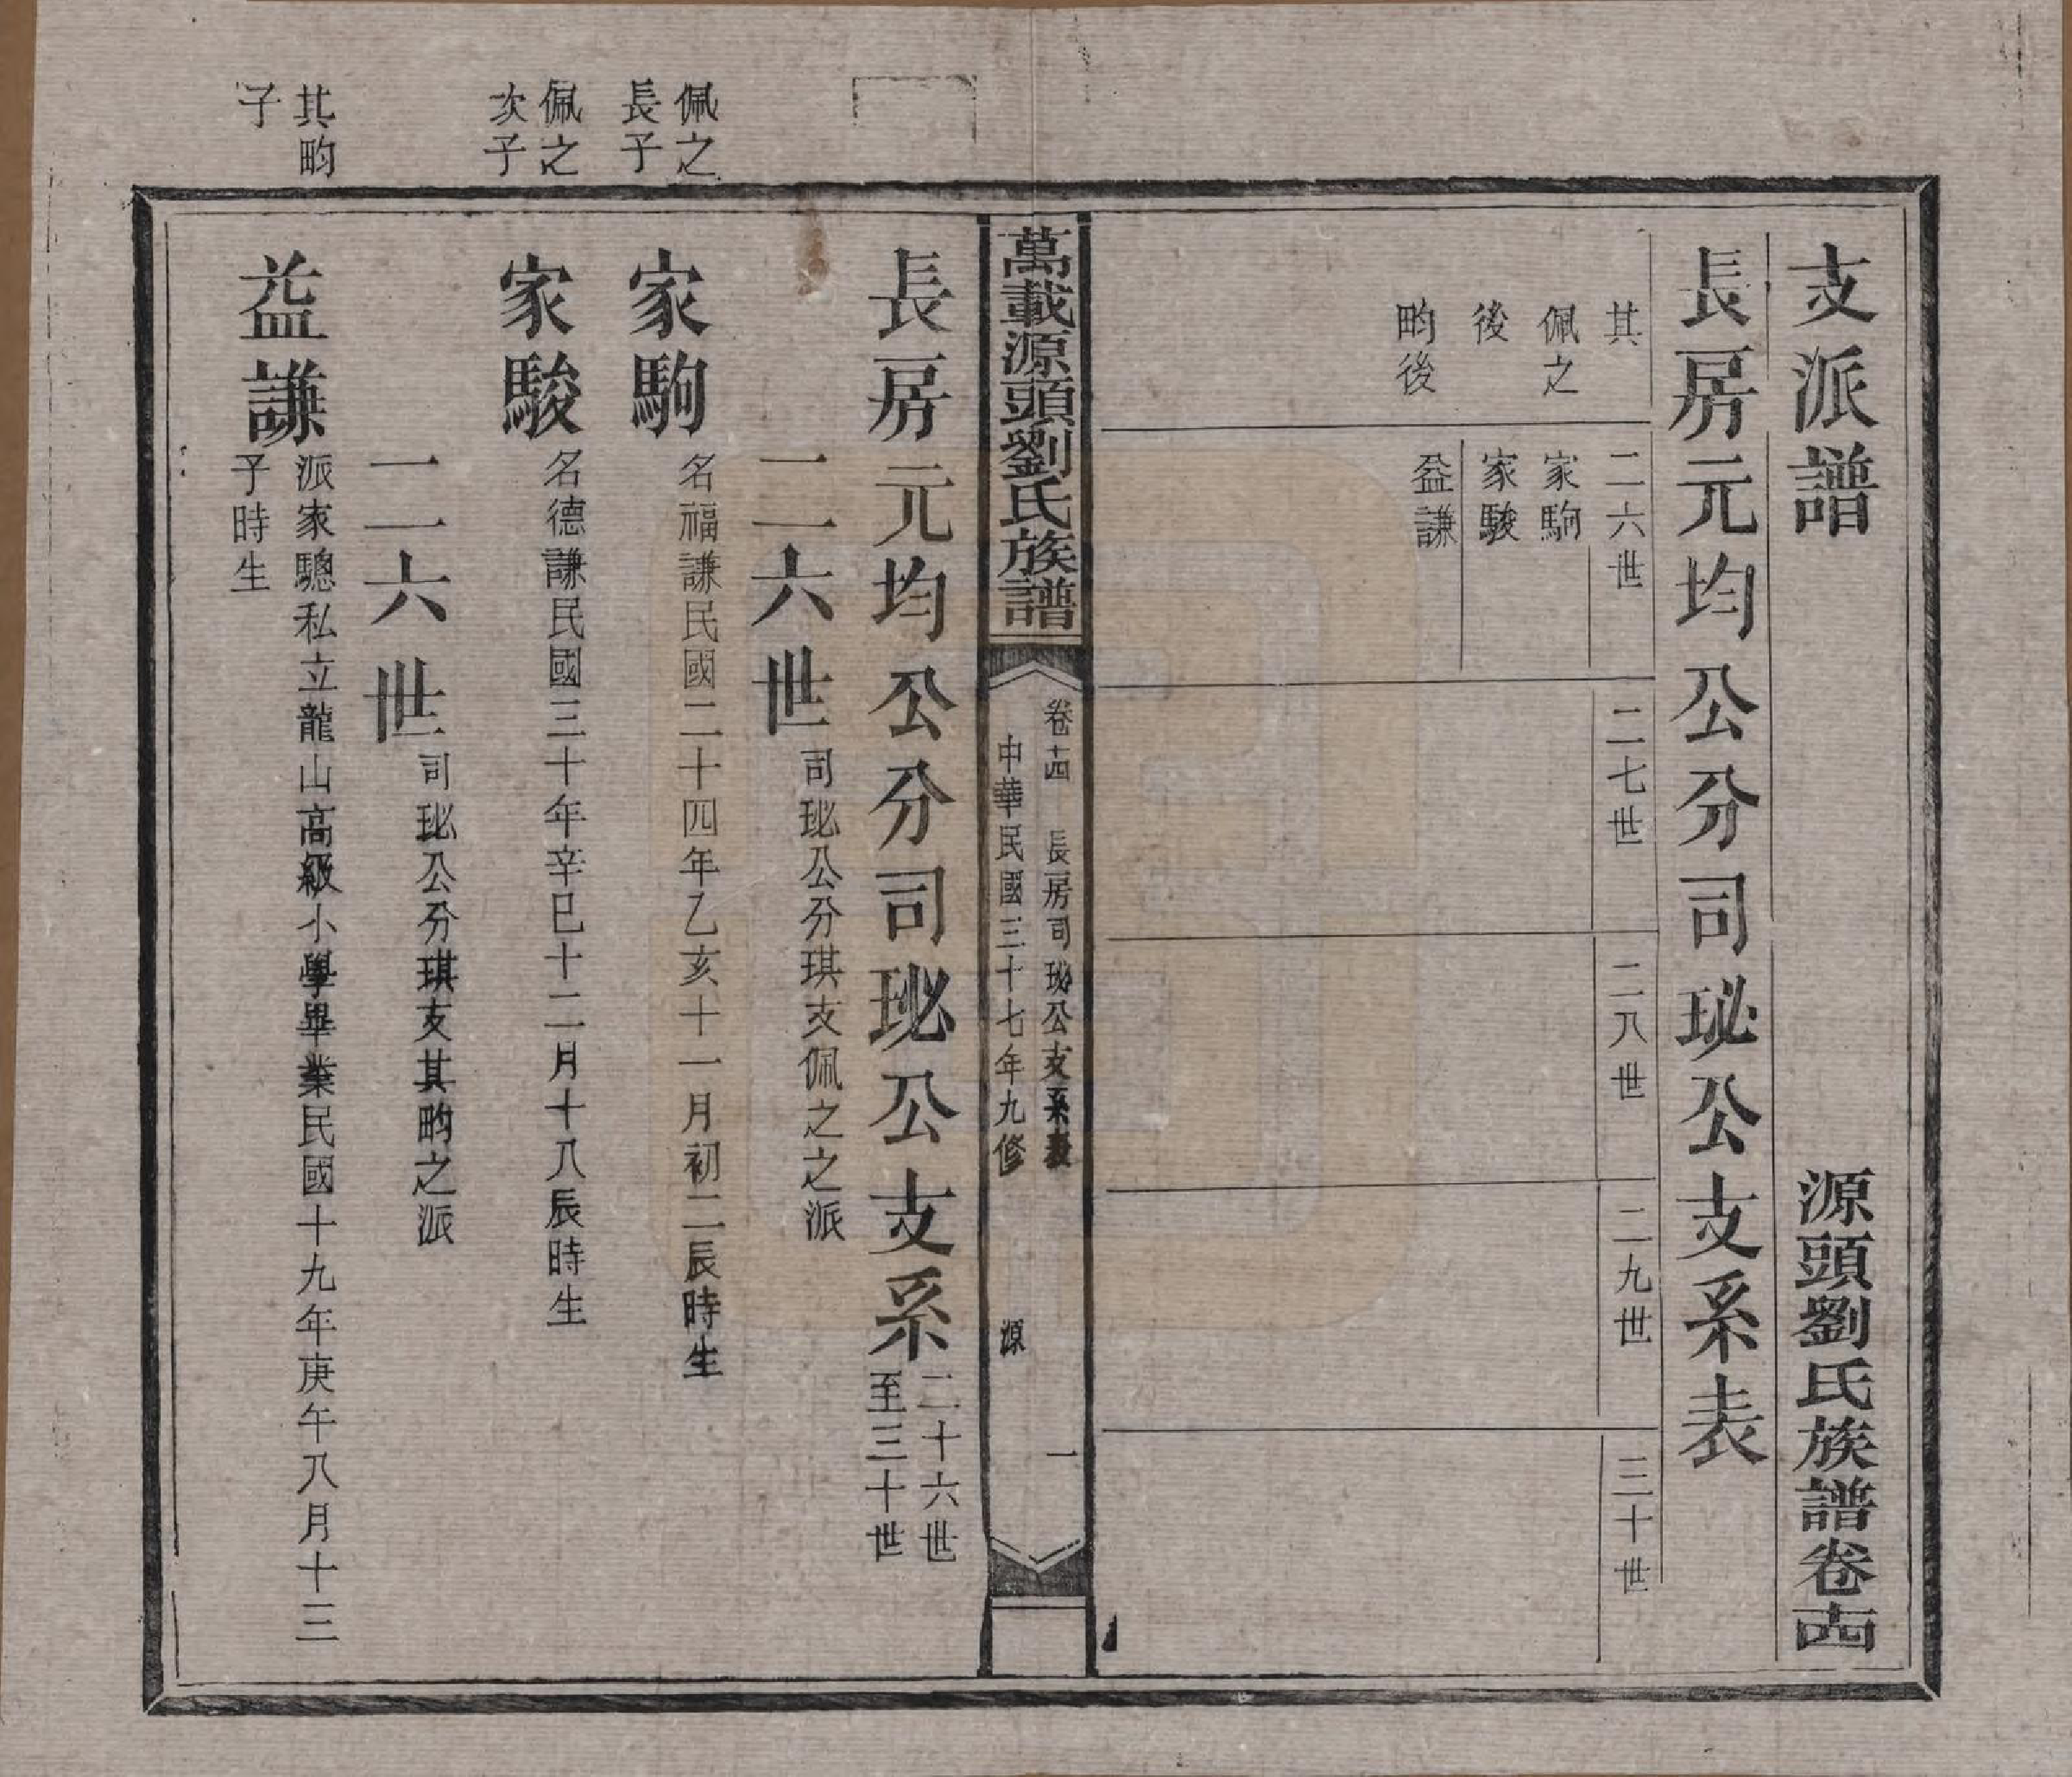 支派譜
源頭劉氏族譜卷十四
長房元均公分司珌公支系表
其
佩之
後
畇後
二六世
家駒
家駿
益謙
二七世
二八世
二九世
三十世
萬載源頭劉氏族譜
卷十四 長房司珌公支系表 一
中華民國三十七年九修 源
長房元均公分司珌公支系
二十六世
至三十世
二六世
司珌公分琪支佩之之派
佩之
長子
家駒
名福謙民國二十四年乙亥十一月初二辰時生
佩之
次子
家駿
名德謙民國三十年辛巳十二月十八辰時生
二六世
司珌公分琪支其畇之派
其畇
子
益謙
派家驄私立龍山高級小學畢業民國十九年庚午八月十三
子時生